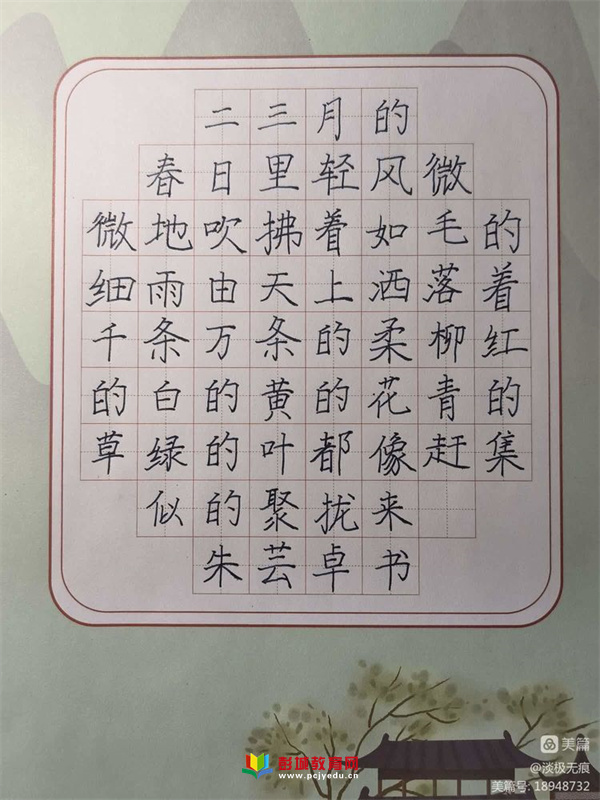 二三月的
春日里轻风微
微地吹拂着如毛的
细雨由天上洒落着
千条万条的柔柳红
的白的黄的花青的
草绿的叶都像赶集
似的聚拢来
朱芸卓书
美篇
@淡极无痕
彭城教育网
www.pcjyedu.cn
美篇号: 18948732